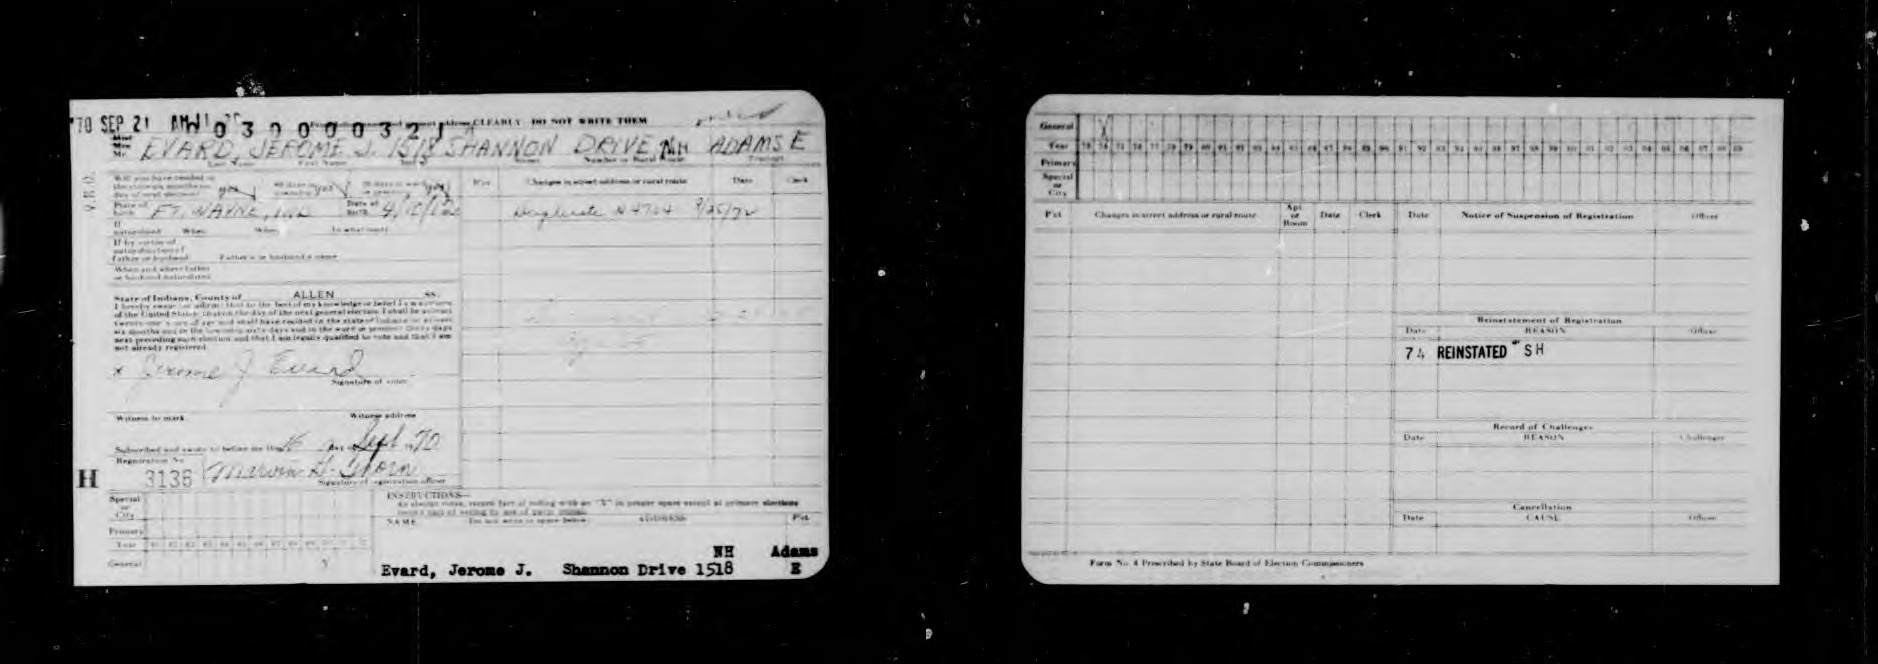 '70 SEP 21 AM 11
0 3 0 0 0 0 3 2 1
CLEARLY DO NOT WRITE THEM
Miss
Mrs
Mr.
EVARD, JEROME J. 1518 SHANNON DRIVE, NH ADAMS E
Last Name First Name Number or Rural Route Precinct
V.R.O.
Will you have resided in
the state six months on
day of next election? yes
yes
yes
Pct Changes in street address or rural route Date Clerk
Place of birth FT. WAYNE, IND Date of birth
Duplicate N4704 9/25/72
If naturalized When Where In what court
If by virtue of
naturalization of
Father or husband Father's or husband's name
When and where father
or husband naturalized
State of Indiana, County of ALLEN SS.
I hereby swear or affirm that to the best of my knowledge or belief I am a citizen
of the United States, that on the day of the next general election I shall be at least
twenty-one years of age and shall have resided in the state of Indiana at least
six months and in the township sixty days and in the ward or precinct thirty days
next preceding such election and that I am legally qualified to vote and that I am
not already registered.
x Jerome J Evard
Signature of voter
Witness to mark Witness address
Subscribed and sworn to before me this 16 day of Sept 1970
Registration No.
H 3136 Marvin
Signature of registration officer
Special
or
City
Primary
Year 61 62 63 64 65 66 67 68 69 70 71 72
General X
INSTRUCTIONS—
As elector votes, record fact of voting with an "X" in proper space except at primary elections
record fact of voting by use of party initial.
NAME Do not write in space below ADDRESS Pct.
NH Adams
Evard, Jerome J. Shannon Drive 1518 E
General X
Year 73 74 75 76 77 78 79 80 81 82 83 84 85 86 87 88 89 90 91 92 93 94 95 96 97 98 99 00 01 02 03 04 05 06 07 08 09
Primary
Special
or
City
Pct Changes in street address or rural route Apt or Room Date Clerk Date Notice of Suspension of Registration Officer
Reinstatement of Registration
Date REASON Officer
74 REINSTATED SH
Record of Challenges
Date REASON Challenger
Cancellation
Date CAUSE Officer
Form No. 4 Prescribed by State Board of Election Commissioners